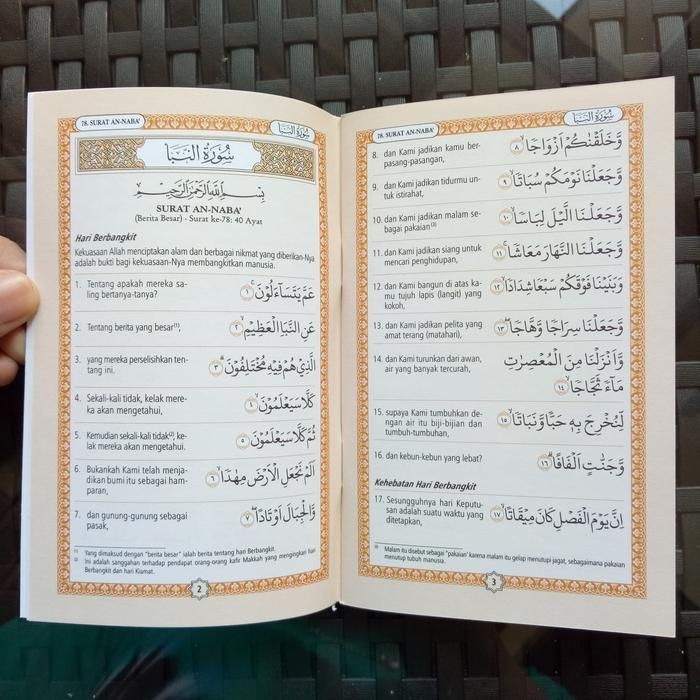 78. SURAT AN-NABA'
سُورَةُ النَّبَإِ
سُورَةُ النَّبَإِ
بِسْمِ اللّٰهِ الرَّحْمٰنِ الرَّحِيْمِ
SURAT AN-NABA'
(Berita Besar) - Surat ke-78: 40 Ayat
Hari Berbangkit
Kekuasaan Allah menciptakan alam dan berbagai nikmat yang diberikan-Nya
adalah bukti bagi kekuasaan-Nya membangkitkan manusia.
1. Tentang apakah mereka sa-
ling bertanya-tanya?
عَمَّ يَتَسَآءَلُوْنَۚ ١
2. Tentang berita yang besar(1),
عَنِ النَّبَاِ الْعَظِيْمِۙ ٢
3. yang mereka perselisihkan ten-
tang ini.
الَّذِيْ هُمْ فِيْهِ مُخْتَلِفُوْنَۗ ٣
4. Sekali-kali tidak, kelak mere-
ka akan mengetahui,
كَلَّا سَيَعْلَمُوْنَۙ ٤
5. Kemudian sekali-kali tidak(2), ke-
lak mereka akan mengetahui.
ثُمَّ كَلَّا سَيَعْلَمُوْنَ ٥
6. Bukankah Kami telah menja-
dikan bumi itu sebagai ham-
paran,
اَلَمْ نَجْعَلِ الْاَرْضَ مِهٰدًاۙ ٦
7. dan gunung-gunung sebagai
pasak,
وَّالْجِبَالَ اَوْتَادًاۖ ٧
(1) Yang dimaksud dengan "berita besar" ialah berita tentang hari Berbangkit.
(2) Ini adalah sanggahan terhadap pendapat orang-orang kafir Makkah yang mengingkari hari
Berbangkit dan hari Kiamat.
2
78. SURAT AN-NABA'
سُورَةُ النَّبَإِ
8. dan Kami jadikan kamu ber-
pasang-pasangan,
وَّخَلَقْنٰكُمْ اَزْوَاجًاۙ ٨
9. dan Kami jadikan tidurmu un-
tuk istirahat,
وَّجَعَلْنَا نَوْمَكُمْ سُبَاتًاۙ ٩
10. dan Kami jadikan malam se-
bagai pakaian(3)
وَّجَعَلْنَا الَّيْلَ لِبَاسًاۙ ١٠
11. dan Kami jadikan siang untuk
mencari penghidupan,
وَّجَعَلْنَا النَّهَارَ مَعَاشًاۚ ١١
12. dan Kami bangun di atas ka-
mu tujuh lapis (langit) yang
kokoh,
وَبَنَيْنَا فَوْقَكُمْ سَبْعًا شِدَادًاۙ ١٢
13. dan Kami jadikan pelita yang
amat terang (matahari),
وَّجَعَلْنَا سِرَاجًا وَّهَّاجًاۖ ١٣
14. dan Kami turunkan dari awan,
air yang banyak tercurah,
وَّاَنْزَلْنَا مِنَ الْمُعْصِرٰتِ
مَآءً ثَجَّاجًاۙ ١٤
15. supaya Kami tumbuhkan de-
ngan air itu biji-bijian dan
tumbuh-tumbuhan,
لِّنُخْرِجَ بِهٖ حَبًّا وَّنَبَاتًاۙ ١٥
16. dan kebun-kebun yang lebat?
وَّجَنّٰتٍ اَلْفَافًاۗ ١٦
Kehebatan Hari Berbangkit
17. Sesungguhnya hari Keputu-
san adalah suatu waktu yang
ditetapkan,
اِنَّ يَوْمَ الْفَصْلِ كَانَ مِيْقَاتًاۙ ١٧
Malam itu disebut sebagai "pakaian" karena malam itu gelap menutupi jagat, sebagaimana pakaian
menutup tubuh manusia.
3